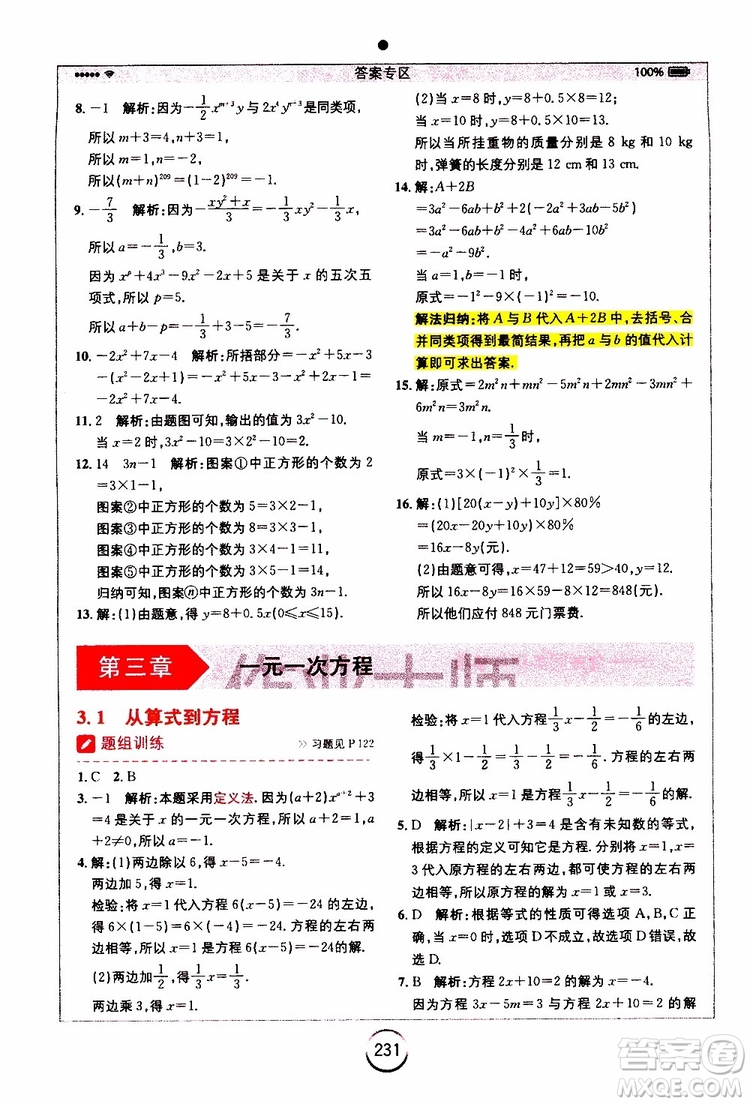 答案专区
100%
8. －1　解析:因为－1/2 x^(m+3) y与2x^4 y^(n+3)是同类项,
所以 m+3=4,n+3=1,
所以 m=1,n=－2,
所以(m+n)^209=(1－2)^209=－1.
9. －7/3　解析:因为－(xy²+x)/3=－1/3 xy²－1/3 x,
所以 a=－1/3,b=3.
因为 x^p+3x²－2x+5 是关于 x 的五次五
项式,所以 p=5.
所以 a+b－p=－1/3+3－5=－7/3.
10. －2x²+7x－4　解析:所捂部分=－2x²+
2x+5x－4=－2x²+7x－4.
11. 2　解析:由题图可知,输出的值为 3x²－10.
当 x=2 时,3x²－10=3×2²－10=2.
12. 14　3n－1　解析:图案①中正方形的个数为 2
=3×1－1,
图案②中正方形的个数为 5=3×2－1,
图案③中正方形的个数为 8=3×3－1,
图案④中正方形的个数为 11=3×4－1,
图案⑤中正方形的个数为 14=3×5－1,
归纳可知,图案ⓝ中正方形的个数为 3n－1.
13. 解:(1)由题意,得 y=8+0.5x(0≤x≤15).
(2)当 x=8 时,y=8+0.5×8=12;
当 x=10 时,y=8+0.5×10=13.
所以当所挂重物的质量分别是 8 kg 和 10 kg
时,弹簧的长度分别是 12 cm 和 13 cm.
14. 解:A+2B
=3a²－6ab－b²+2(－2a²+3ab－5b²)
=3a²－6ab－b²－4a²+6ab－10b²
=－a²－9b².
当 a=1,b=－1 时,
原式=－1²－9×(－1)²=－10.
解法归纳:将 A 与 B 代入 A+2B 中,去括号、合
并同类项得到最简结果,再把 a 与 b 的值代入计
算即可求出答案.
15. 解:原式=2m²n+mn－5m²n－2mn+mn+
6m²n=3m²n.
当 m=－1,n=1/3时,
原式=3×(－1)²×1/3=1.
16. 解:(1)[20(x－y)+10y]×80%
=(20x－20y+10y)×80%
=16x－8y(元).
(2)由题意可得,x=47+12=59>40,y=12.
所以 16x－8y=16×59－8×12=848(元).
所以他们应付 848 元门票费.
第三章　一元一次方程
3.1　从算式到方程
题组训练　» 习题见 P122
1. C　2. B
3. －1　解析:本题采用定义法.因为(a+2)x^(a+2)+3
=4 是关于 x 的一元一次方程,所以 a+2=1,且
a+2≠0,解得 a=－1.
4. 解:(1)两边除以 6,得 x－5=－4.
两边加 5,得 x=1.
检验:将 x=1 代入方程 6(x－5)=－24 的左边,
得 6×(1－5)=6×(－4)=－24.方程的左右两
边相等,所以 x=1 是方程 6(x－5)=－24 的解.
(2)两边加1/2,得1/3 x=1/3.
两边乘 3,得 x=1.
检验:将 x=1 代入方程1/3 x－1/2=－1/6的左边,
得1/3×1－1/2=1/3－1/2=－1/6.方程的左右两
边相等,所以 x=1 是方程1/3 x－1/2=－1/6的解.
5. D　解析:|x－2|+3=4 是含有未知数的等式,
根据方程的定义可知它是方程.分别将 x=1 和 x=
3 代入原方程的左右两边,都可使方程的左右两边
相等,所以方程的解为 x=1 或 x=3.
6. D　解析:根据等式的性质可得选项 A,B,C 正
确.当 c=0 时,选项 D 不成立,故选项 D 错误,故
选 D.
7. B　解析:方程 x+6=2 的解为 x=－4.
因为方程 3x－5m=3 与方程 x+6=2 的解
231
答案圈
MXQE.COM